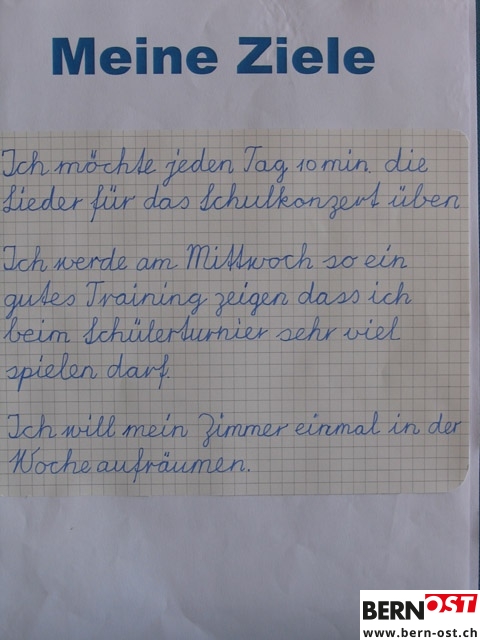 Meine Ziele
Ich möchte jeden Tag 10 min. die
Lieder für das Schulkonzert üben
Ich werde am Mittwoch so ein
gutes Training zeigen dass ich
beim Schülerturnier sehr viel
spielen darf.
Ich will mein Zimmer einmal in der
Woche aufräumen.
BERNOST
www.bern-ost.ch